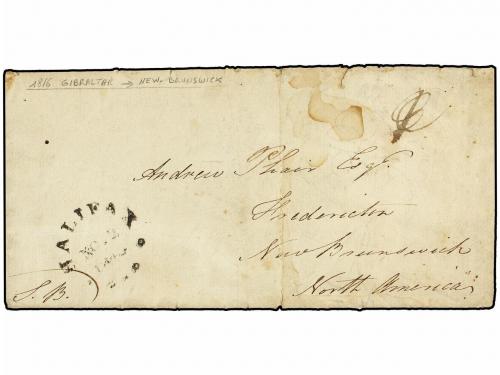 1816 GIBRALTAR → NEW-BRUNSWICK
Andrew Phair Esqr.
Fredericton
New Brunswick
North America
HALIFAX
NO 2
S. B.